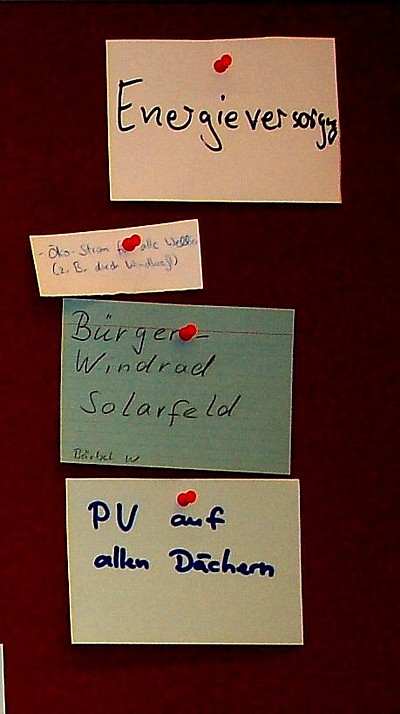 Energieversorgg
- Öko-Strom für alle
(z. B. durch Windkraft)
Bürger-
Windrad
Solarfeld
Bärbel W
PV auf
allen Dächern